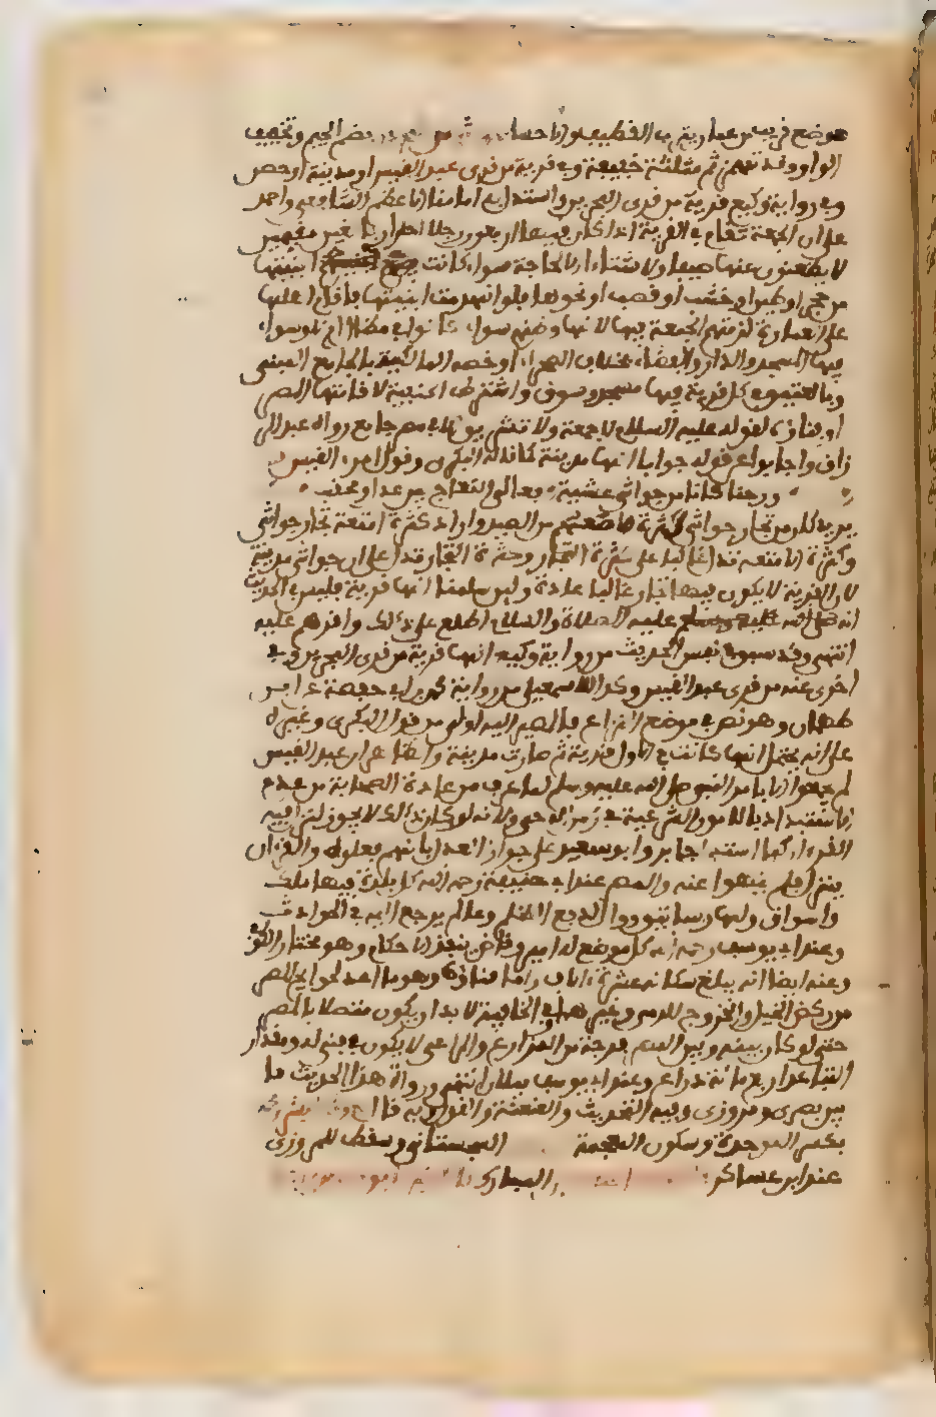 موضع قريب من عمان بقرب القطيف والاحسا من بضم الجيم وتخفيف
الواو وقد تهمز ثم مثلثة خفيفة وهي قرية من قرى عبد القيس او مدينة او حصن
وفي رواية وكيع قرية من قرى البحرين واستدل به امامنا الاعظم الشافعي واحمد
على ان الجمعة تقام في القرية اذا كان فيها اربعون رجلا احرارا غير مقيمين
لا يظعنون عنها صيفا ولا شتاء الا لحاجة سواء كانت ابنيتها
من حجر او طين او خشب او قصب او نحوها فلو انهدمت ابنيتها فاقام اهلها
على العمارة لزمتهم الجمعة فيها لانها وطنهم سواء كانوا في مظال ام لا وسواء
فيها المسجد والدار والفضاء بخلاف الصحراء وخصه المالكية بالجامع المبنى
وبالعتيق في كل قرية فيها مسجد وسوق واشترط الحنفية لاقامتها المصر
او فناؤه لقوله عليه السلام لا جمعة ولا تشريق الا في مصر جامع رواه عبد الر
زاق واجابوا عن قوله جواثا انها مدينة كما قاله البكري وقول امرئ القيس
ورحنا كانا من جواثى عشية نعالي النعاج بين عدل ومحقب
يريد كان من تجار جواثى لكثرة ما معهم من الصيد واراد كثرة امتعة تجار جواثى
وكثرة الامتعة تدل غالبا على كثرة التجار وكثرة التجار تدل على ان جواثى مدينة
لان القرية لا يكون فيها تجار غالبا عادة ولئن سلمنا انها قرية فليس في الحديث
انه عليه الصلاة والسلام اطلع على ذلك واقرهم عليه
انتهى وقد سبق في نفس الحديث من رواية وكيع انها قرية من قرى البحرين وفي
اخرى عنه من قرى عبد القيس وكذا للاسمعيلي من رواية محمد بن ابي حفصة عن ابن
طهمان وهو نص في موضع النزاع فالمصير اليه اولى من قول البكري وغيره
على انه يحتمل انها كانت في الاول قرية ثم صارت مدينة والظاهر ان عبد القيس
لم يجمعوا الا بامر النبي صلى الله عليه وسلم لما عرف من عادة الصحابة من عدم
الاستبداد بالامور الشرعية في زمن الوحي ولانه لو كان ذلك لا يجوز لنزل فيه
القرءان كما استدل جابر وابو سعيد على جواز العزل بانهم فعلوه والقرءان
ينزل فلم ينهوا عنه والمصر عند ابي حنيفة رحمه الله كل بلدة فيها ملك
واسواق ولها رساتيق ووال لدفع الظلم وعالم يرجع اليه في الحوادث
وعند ابي يوسف رحمه الله كل موضع له امير وقاض ينفذ الاحكام وهو مختار الكرخي
وعنه ايضا انه يبلغ سكانه عشرة الاف واما فناؤه وهو ما اعد لحوايج المصر
من ركض الخيل والخروج للرمي وغيرهما في الخانية لا بد ان يكون متصلا بالمصر
حتى لو كان بينه وبين المصر فرجة من المزارع والمراعي لا يكون فناء له ومقدار
التباعد اربعمائة ذراع وعند ابي يوسف ميلان انتهى ورواة هذا الحديث ما
بين بصرى ومروزى وفيه التحديث والعنعنة والقول وبه قال حدثنا بشر
بكسر الموحدة وسكون المعجمة السجستاني وسقط للمروزى
عند ابن عساكر المبارك